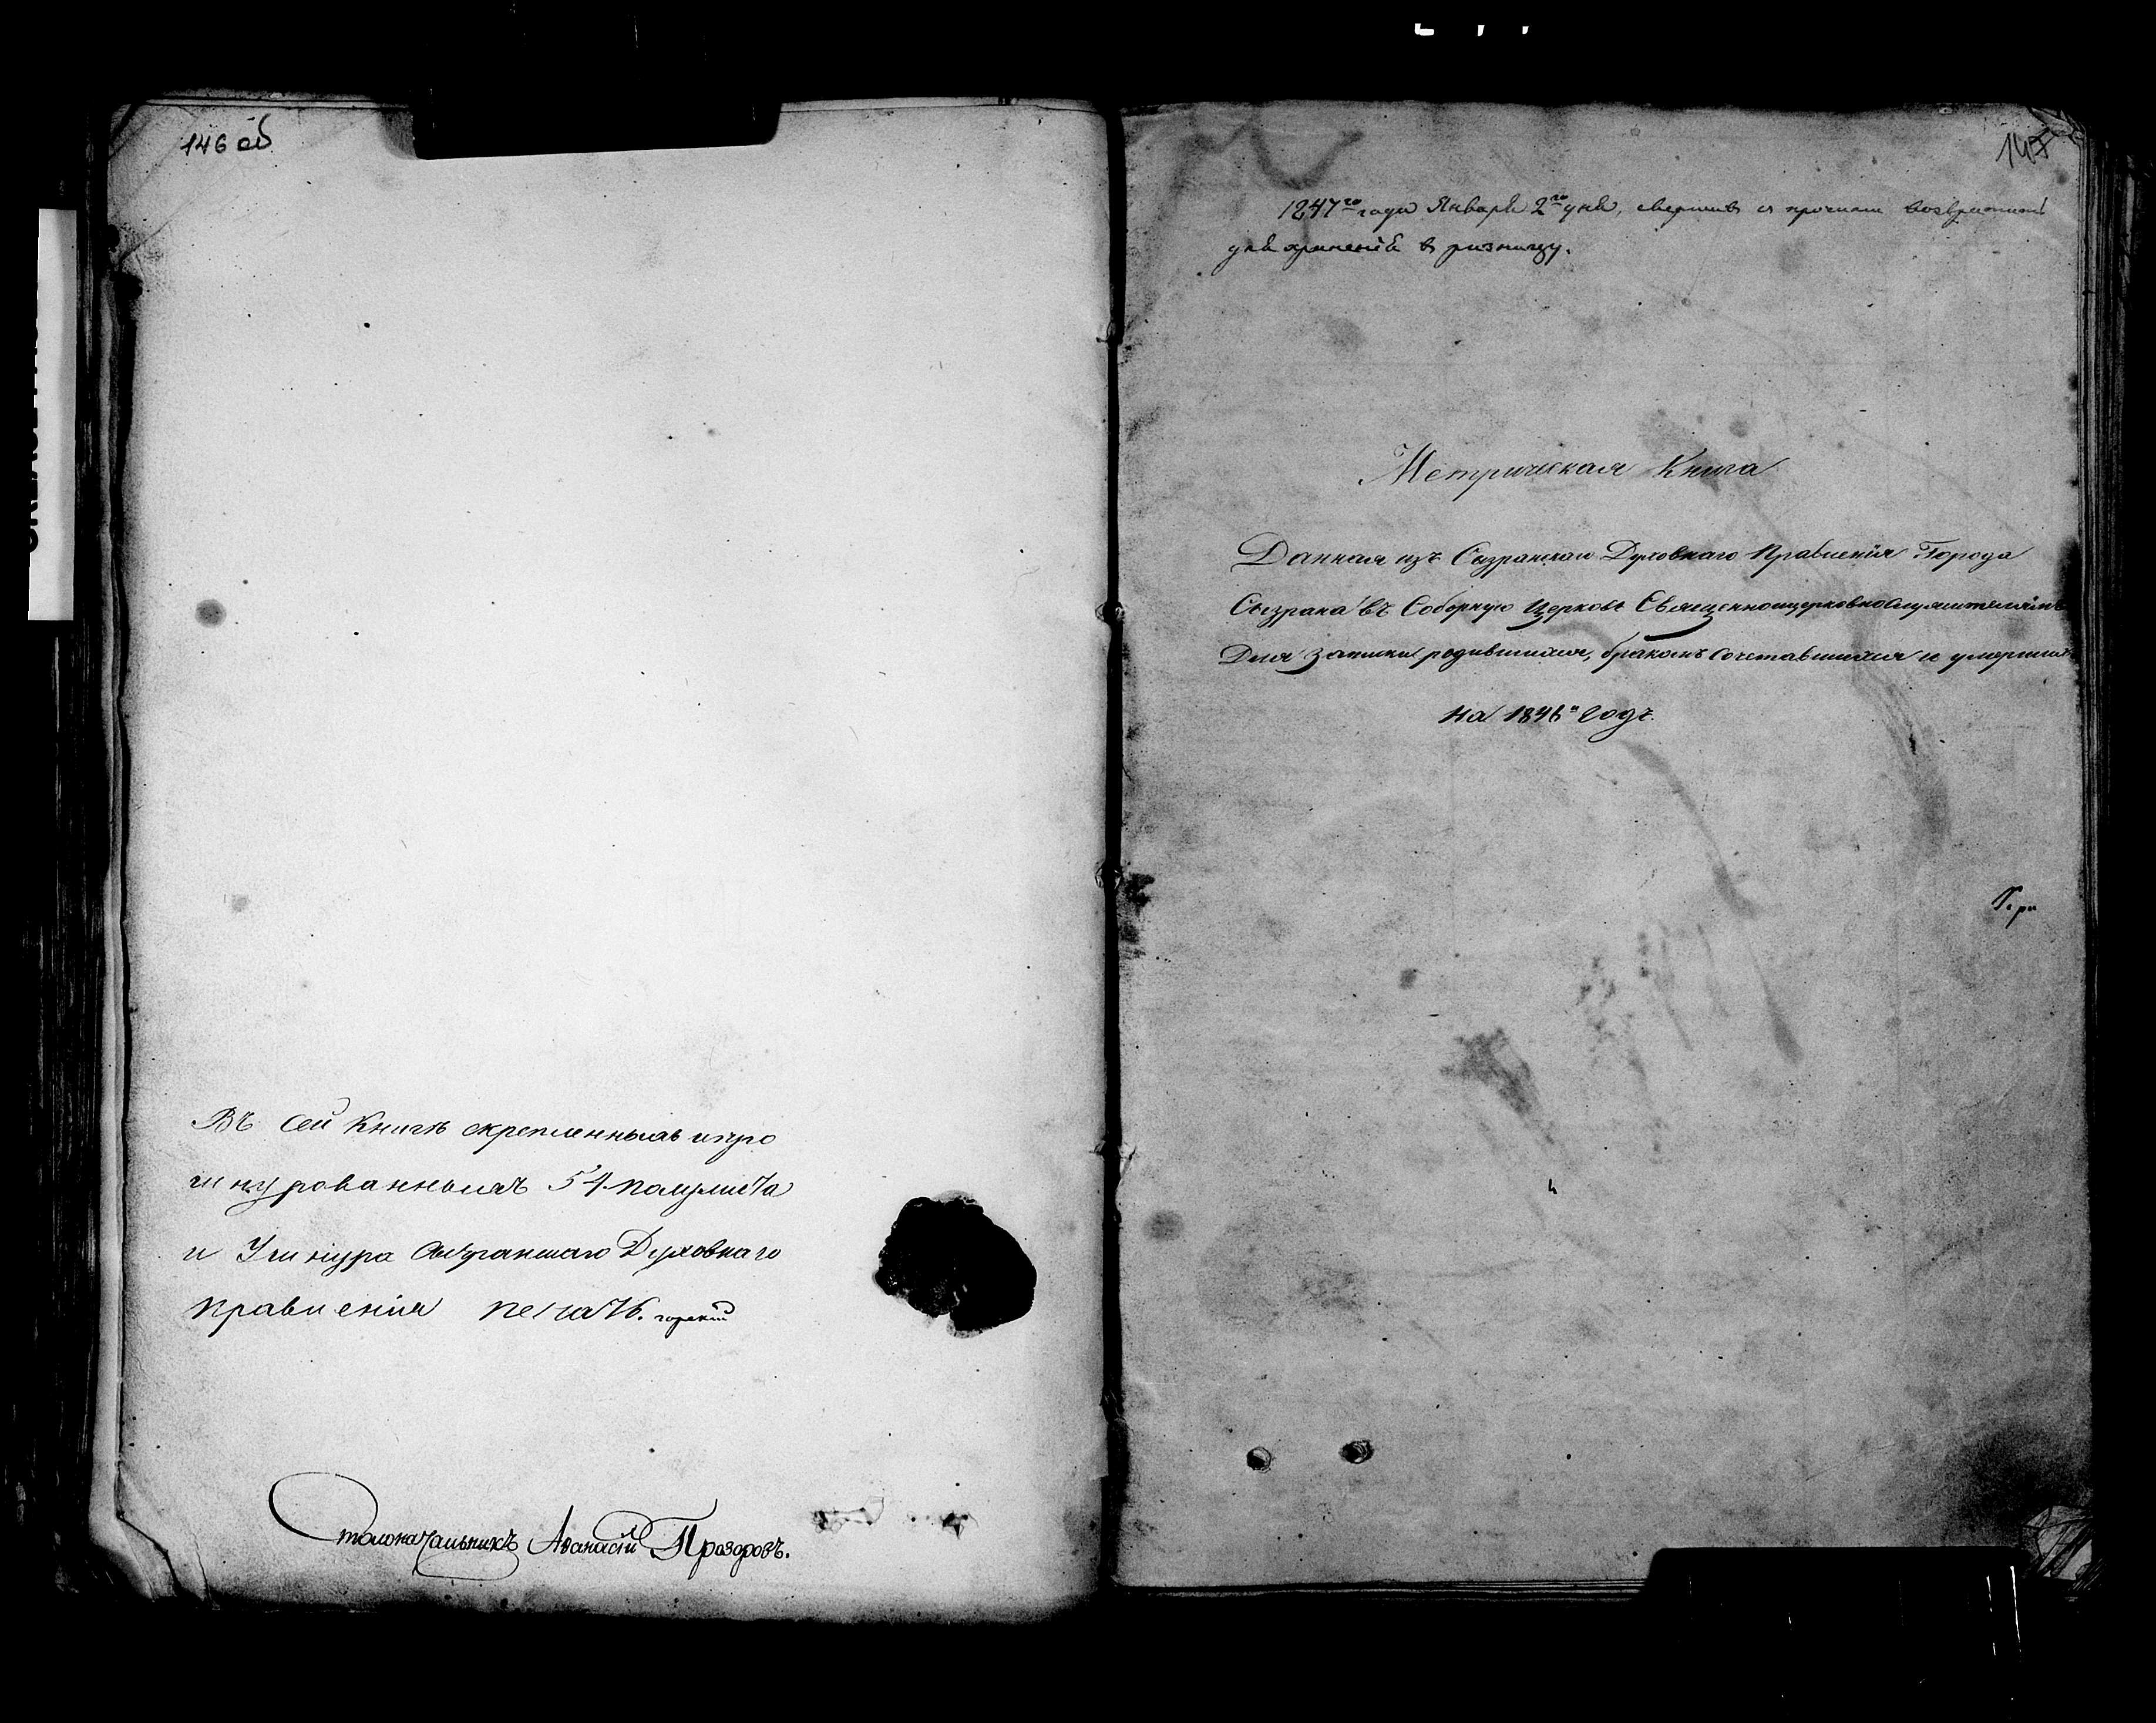 146 об
Въ сей Книгѣ скрепленныхъ и про
шнурованныхъ 54 полулиста
и У шнура Сызранскаго Духовнаго
правленія печать.
Столоначальникъ Аѳанасій Прозоровъ.
147
1847го года Января 2го дня, сверивъ съ прочими возвратить
для храненія въ ризницу.
Метрическая Книга
Данная изъ Сызранскаго Духовнаго Правленія Города
Сызрана въ Соборную Церковь Священноицерковнослужителямъ
Для записки родившихся, бракомъ сочетавшихся и умершихъ
на 1846й годъ.